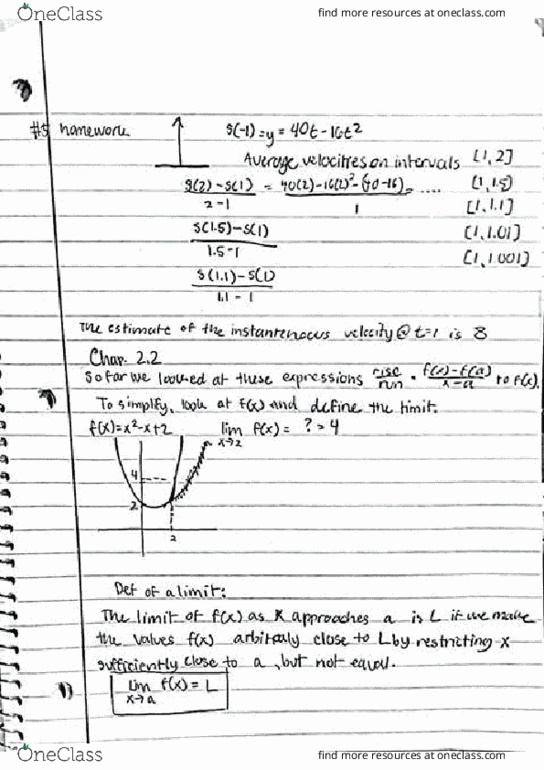 OneClass
find more resources at oneclass.com
#5 homework
s(-1)=y = 40t - 16t²
Average velocitres on intervals [1, 2]
s(2) - s(1) / 2 - 1 = 40(2) - 16(2)² - (40 - 16) / 1 = ....
[1, 1.5]
[1, 1.1]
s(1.5) - s(1) / 1.5 - 1
[1, 1.01]
[1, 1.001]
s(1.1) - s(1) / 1.1 - 1
The estimate of the instantenous velocity @ t=1 is 8
Chap. 2.2
So far we looked at these expressions rise/run = f(x)-f(a) / x-a to f(x).
To simplify, look at f(x) and define the limit.
f(x)=x²-x+2
lim x→2 f(x) = ? > 4
4
2
2
Def of a limit:
The limit of f(x) as x approaches a is L if we make
the values f(x) arbitraly close to L by restricting x
sufficiently close to a, but not equal.
lim x→a f(x) = L
OneClass
find more resources at oneclass.com